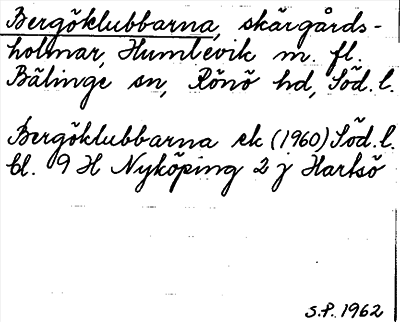 Bergöklubbarna, skärgårds-
holmar, Humlevik m. fl.
Bälinge sn, Rönö hd, Söd. l.
Bergöklubbarna ek (1960) Söd. l.
bl. 9 H Nyköping 2 j Hartsö
S.P. 1962